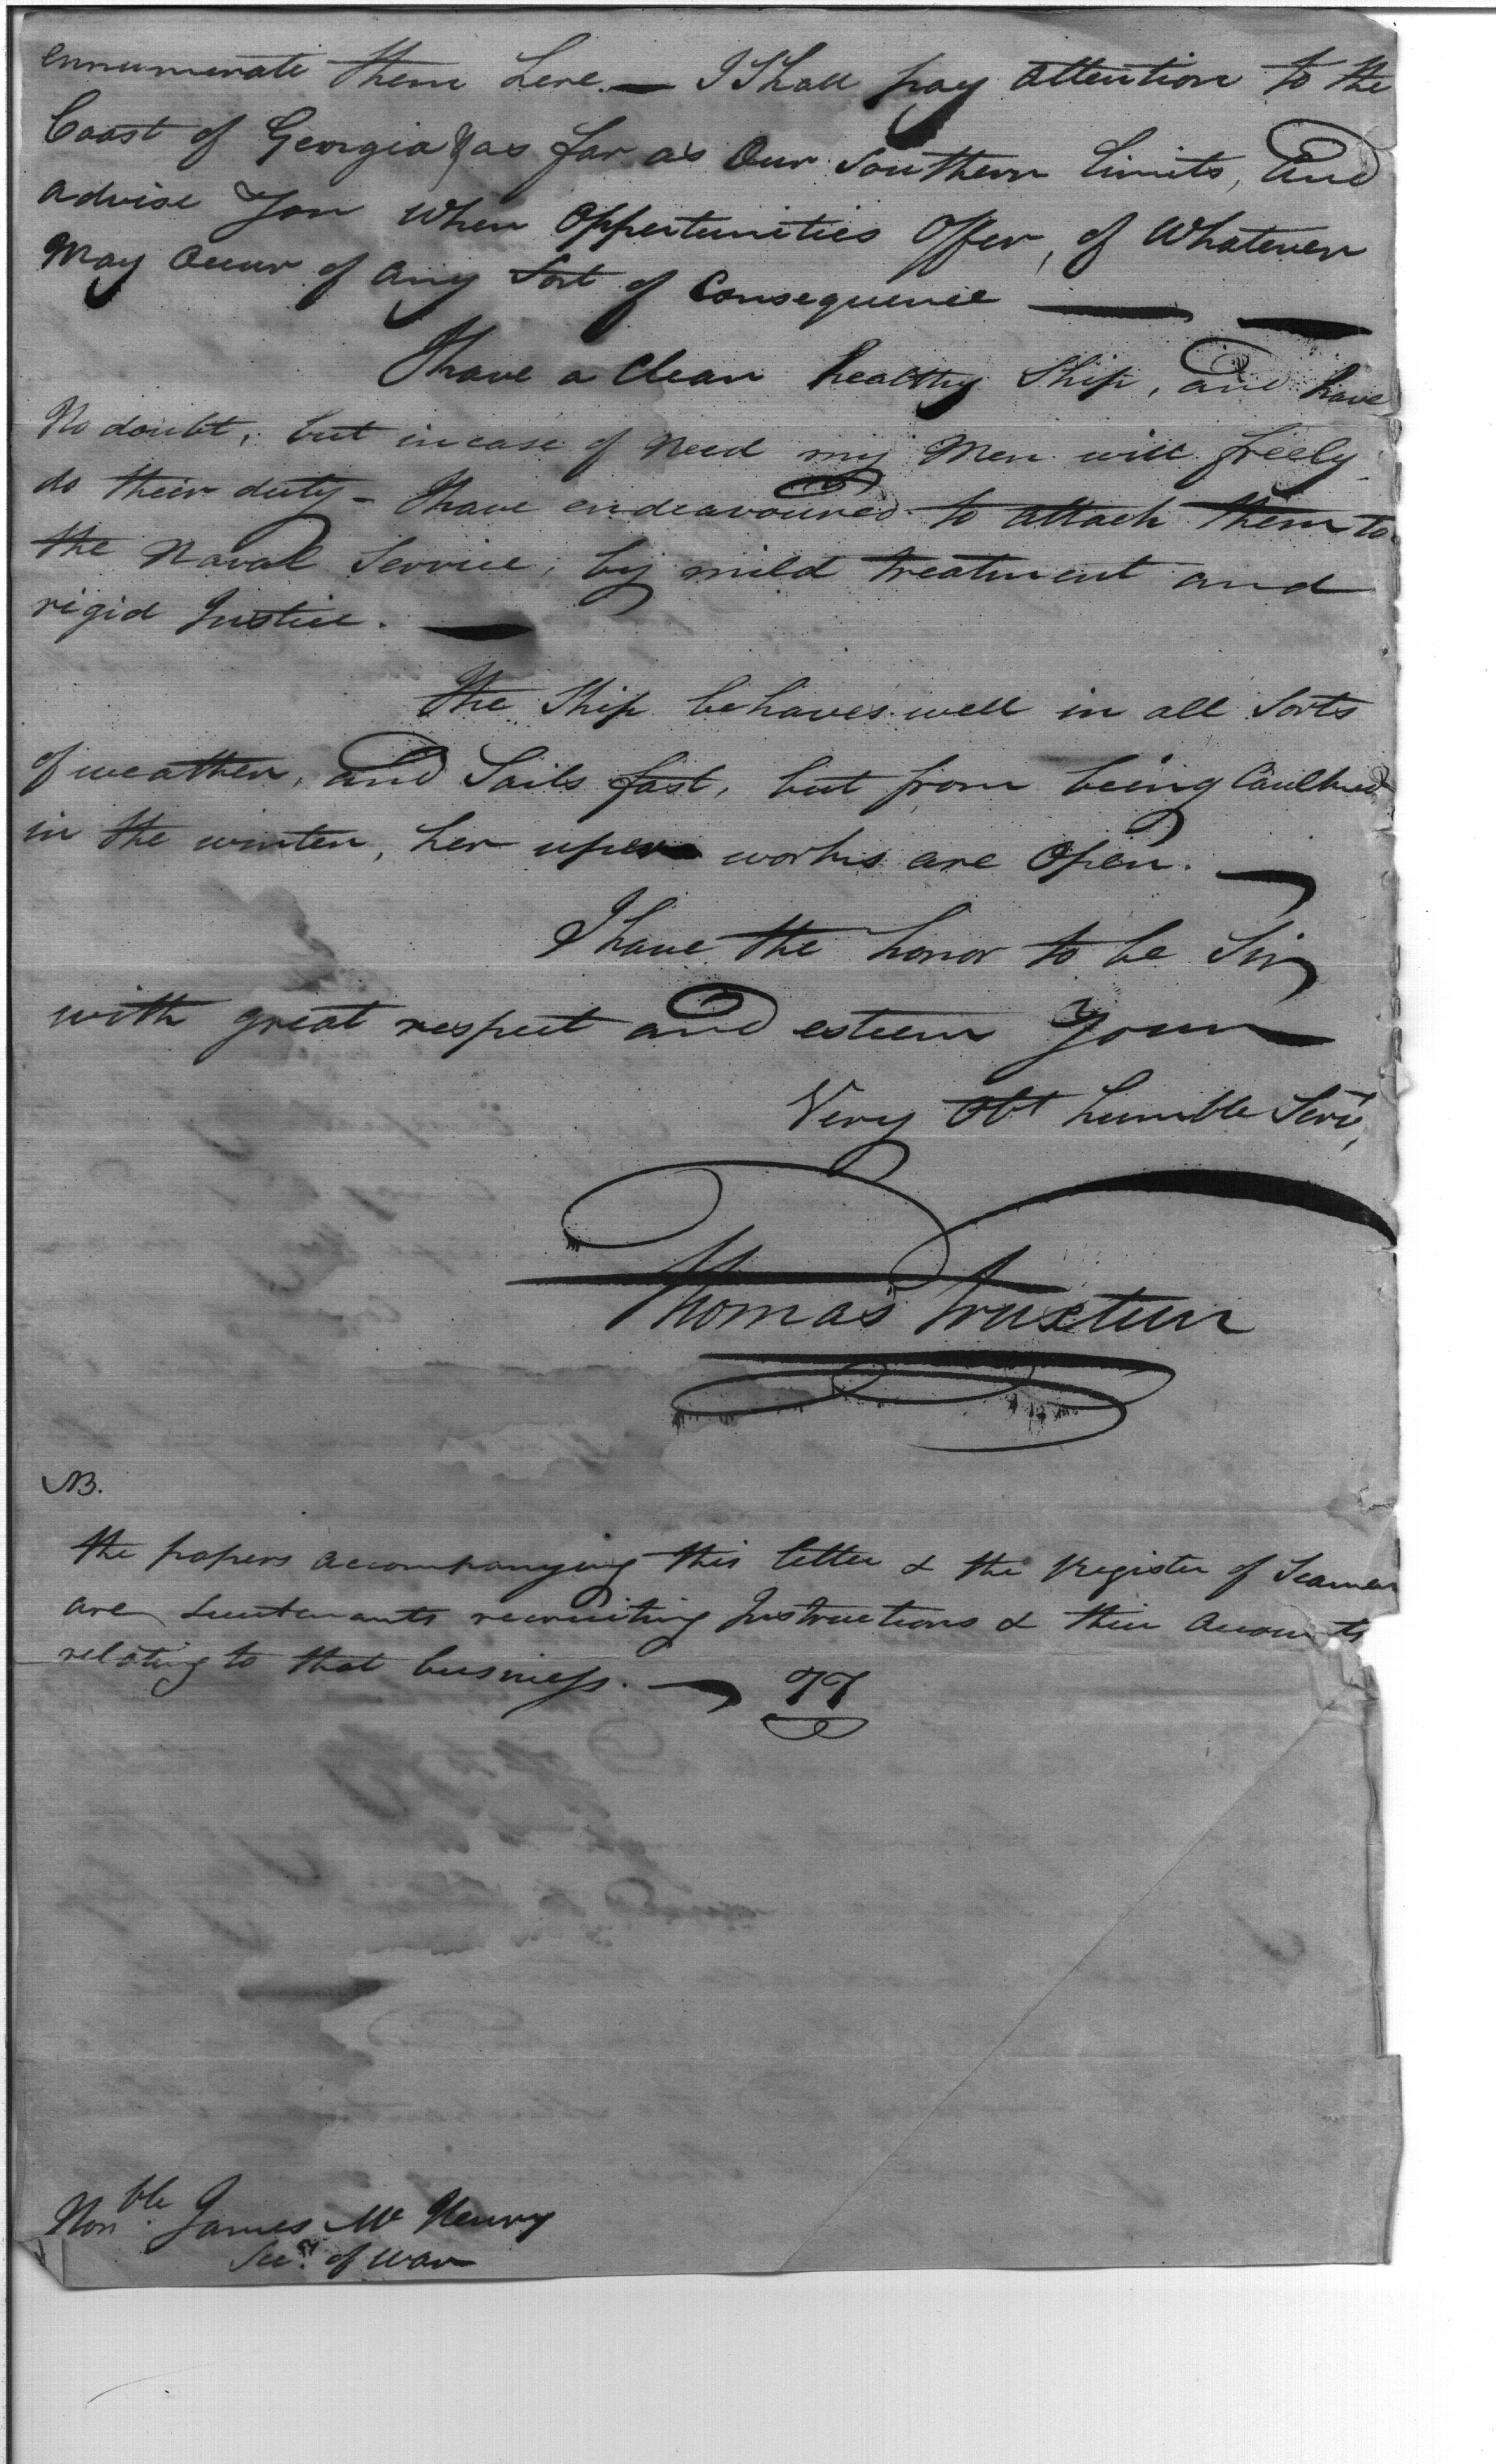 ennumerate them here. — I Shall pay attention to the
Coast of Georgia & as far as Our Southern Limits, and
advise You When Oppertunities Offer, of Whatever
May Occur of any Sort of Consequence —
I have a Clean healthy Ship, and have
No doubt, but in case of Need my Men will freely
do their duty - I have endeavoured to attach them to
the Naval Service, by mild treatment and
rigid Justice. —
The Ship behaves well in all Sorts
of weather, and Sails fast, but from being Caulked
in the winter, her uper works are Open. —
I have the honor to be Sir
with great respect and esteem Your
Very Obt humble Servt,
Thomas Truxtun
NB.
the papers accompanying this letter & the Register of Seamen
are Lieutenants recruiting Instructions & their Accounts
relating to that business. — TT
Honble James McHenry
Secy of War